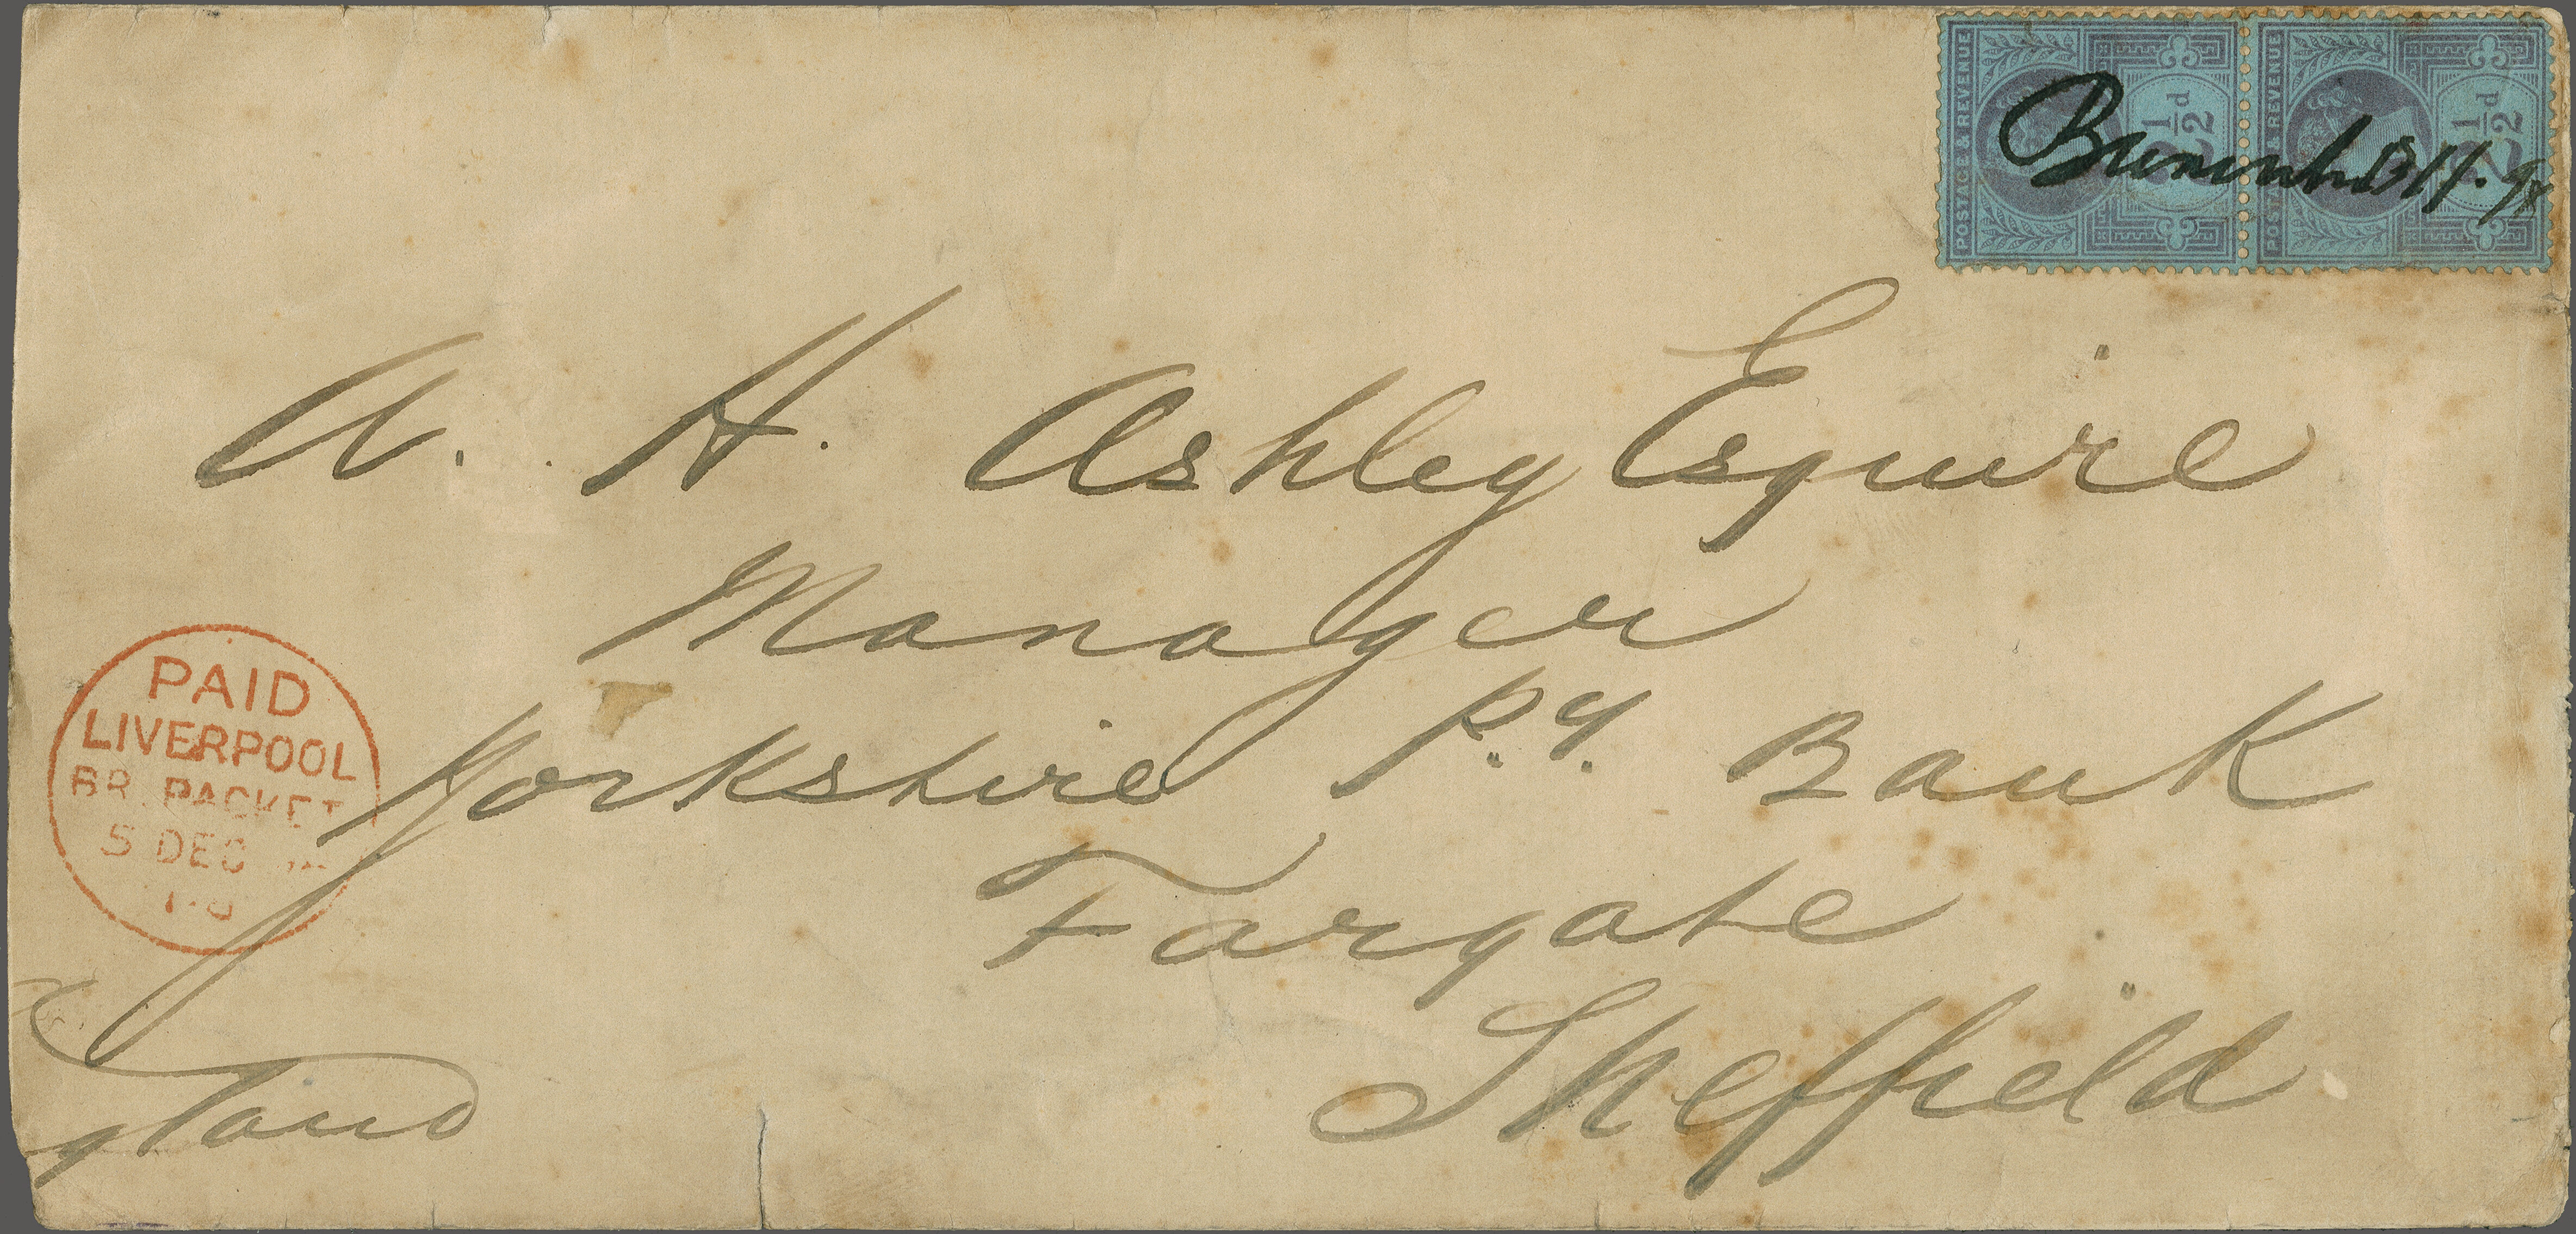 POSTAGE & REVENUE
2½d
POSTAGE & REVENUE
2½d
A. H. Ashley Esquire
Manager
Yorkshire P.y. Bank
Fargate
Sheffield
gland
PAID
LIVERPOOL
BR. PACKET
5 DEC